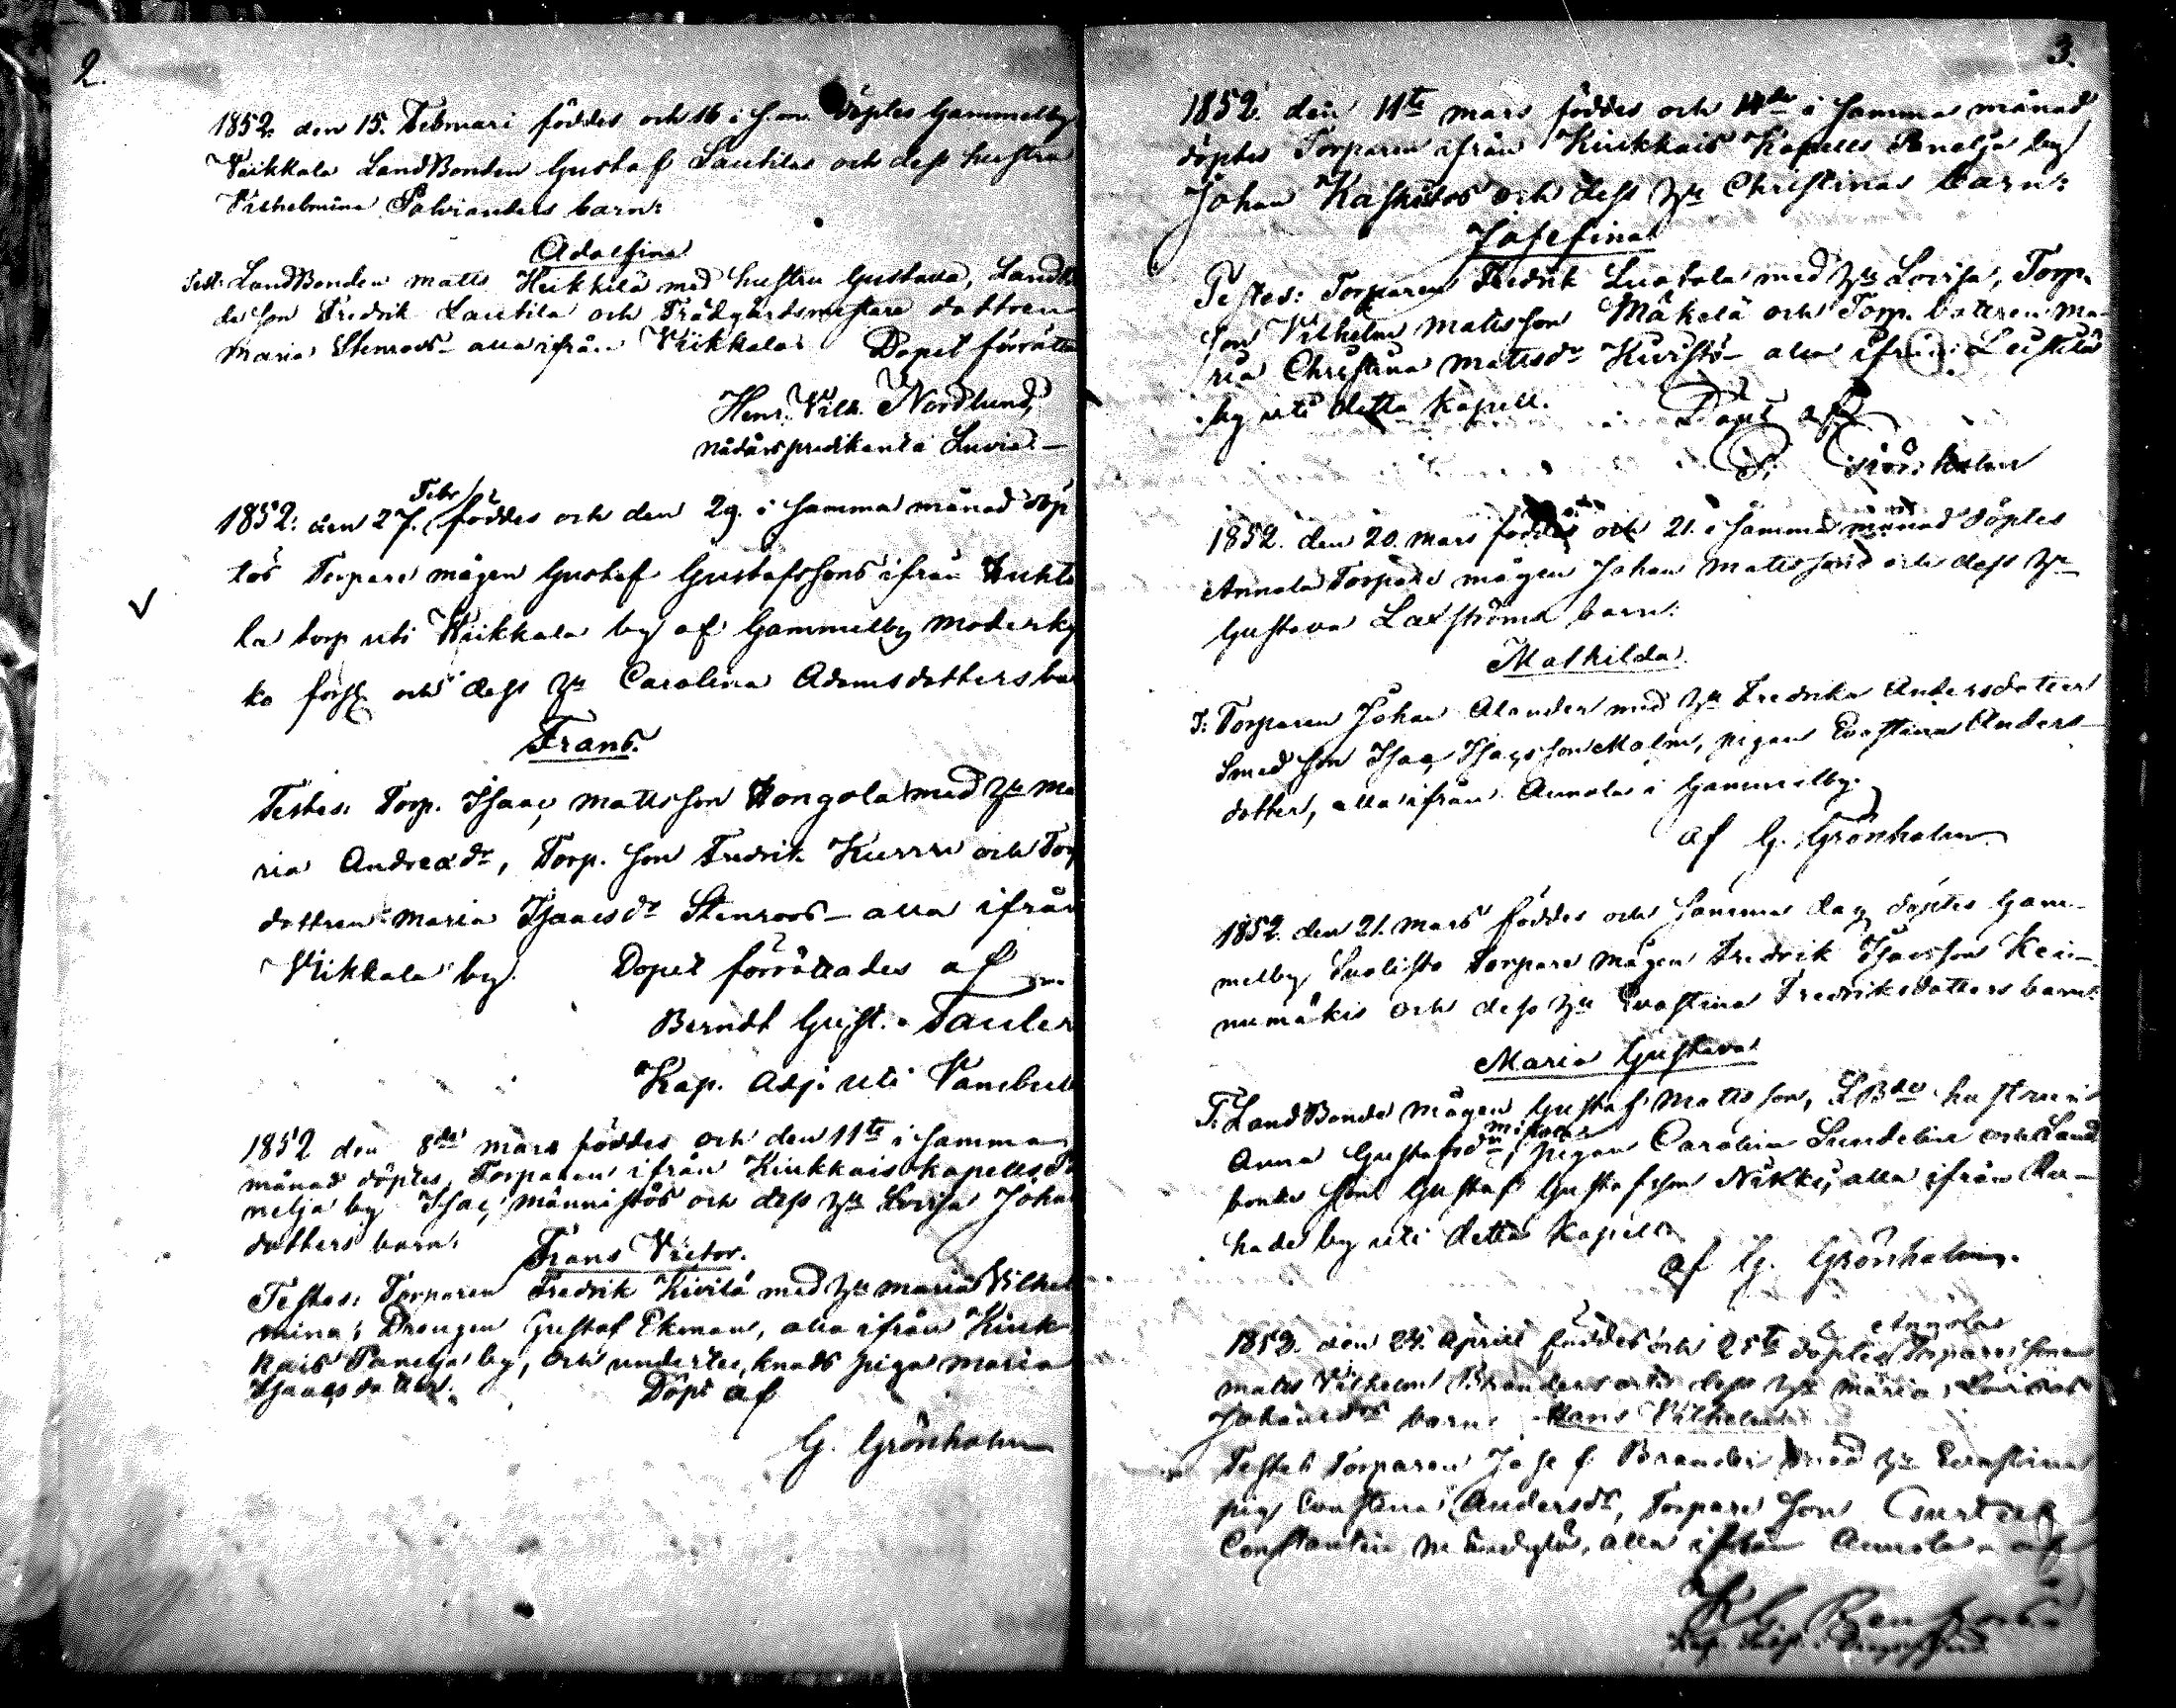 2.
1852. den 15. Februari föddes och 16 i s.m. döptes Gammelby
Viikkala LandBonden Gustaf Lautilas och dess hustru
Vilhelmina Palvianders barn:
Adolfina
Test: LandBonden Matts Heikkilä med hustru Gustava, Landb
de son Fredrik Lautila och Trädgårdsmästare dottren
Maria Stenroos - alla ifrån Viikkala. Dopet förrätta
Henr. Vilh. Nordlund,
nådårspredikant i Luvia. -
1852: den 27. Febr föddes och den 29. i samma månad döp
tes Torpare mågen Gustaf Gustafssons ifrån Huhta
la torp uti Viikkala by af Gammelby moderky
ko förs. och dess hu Carolina Adamsdotters ba
Frans.
Testes: Torp. Isaac Mattsson Hongola med hu Ma
ria Andreædr, Torp. son Fredrik Kurri och Torp
dottren Maria Isaacsdr Stenroos - alla ifrån
Viikkala by. Dopet förrättades af
Berndt Gust. Tauler
Kap. Adj. uti
1852 den 8de mars föddes och den 11te i samma
månad döptes, Torparen ifrån Kiukkais kapells Pa
nelja by Isac Männistös och dess hu Lovisa Joha
dotters barn:
Frans Victor.
Testes: Torparen Fredrik Kivilä med hu Maria Vilhel
mina; Drengen Gustaf Ekman, alla ifrån Kiuk
kais Panelja by, och undertecknads piga Maria
Isaacsdotter. Döpt af
G. Grönholm
3.
1852. den 11te mars föddes och 14de i samma månad
döptes Torparen ifrån Kiukkais Kapells Panelja by
Johan Kaskistos och dess hu Christinas barn:
Josefina
Testes: Torparen Fredrik Luotola med hu Lovisa, Torp.
son Vilhelm Matsson Mäkelä och Torp. dottren Ma-
ria Christina Mattsdr - alla ifrån Leistilä
by uti detta kapell. Döpt af
G. Grönholm
1852. den 20. mars föddes och 21. i samma månad döptes
Annola Torpare mågen Johan Mattssons och dess hu
Gustava Laxströms barn:
Mathilda.
T: Torparen Johan Alander med hu Fredrika Andersdotter
Smed son Isac Isacsson Malm, pigan Evastina Anders-
dotter, alla ifrån Annola i Gammelby.
af G. Grönholm
1852. den 21. mars föddes och samma dag döptes Gam-
melby Suolisto Torpare mågen Fredrik Isacsson Kei-
numäkis och dess hu Evastina Fredriksdotters barn:
Maria Gustava
T: LandBonde mågen Gustaf Mattsson, LBde hustrun
Anna Gustafsdr, pigan Carolina Sundelin och Land
bonde son Gustaf Gustafsson Nikki, alla ifrån Ra-
hade by uti detta kapell
af G. Grönholm.
1852. den 24. April föddes och 25te döptes Annola Torpare sonen
Matts Vilhelm Branders och dess hu Maria Lovisa
Johansdrs barn: Frans Vilhelm
Testes Torparen Josef Brander med hu Evastina
pig Evastina Andersdr, Torpare son Gustaf
Constantin, alla ifrån Annola af
K G.